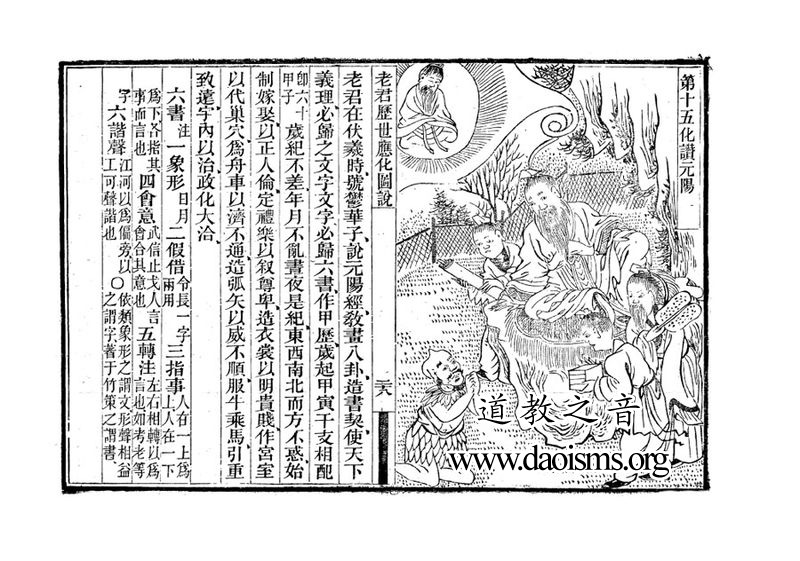 第十五化讚元陽
老君歷世應化圖說
二八
老君在伏羲時號鬱華子說元陽經教畫八卦造書契使天下
義理必歸之文字文字必歸六書作甲歷歲起甲寅干支相配
卽六十甲子歲紀不差年月不亂晝夜是紀東西南北而方不惑始
制嫁娶以正人倫定禮樂以叙尊卑造衣裳以明貴賤作宮室
以代巢穴爲舟車以濟不通造弧矢以威不順服牛乘馬引重
致遠宇內以治政化大洽
六書注一象形日月二假借令長一字兩用三指事人在一上爲上人在一下
爲下各指其事而言也四會意武信止戈人言會合其意也五轉注左右相轉以爲言也如考老等
字六諧聲江河以爲偏旁以工可聲諧也○依類象形之謂文形聲相益之謂字著于竹策之謂書
道教之音
www.daoisms.org